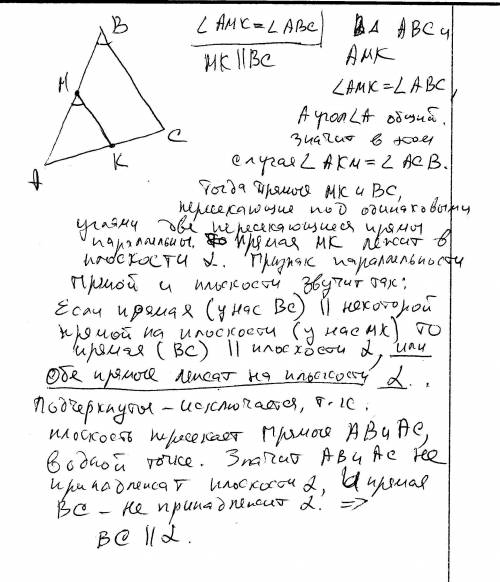 B
M
A
K
C
∠AMK = ∠ABC
MK || BC
В Δ ABC и
AMK
∠AMK = ∠ABC,
А угол ∠A общий.
Значит в этом
случае ∠AKM = ∠ACB.
Тогда прямые MK и BC,
пересекающие под одинаковыми
углами две пересекающиеся прямы
параллельны. прямая MK лежит в
плоскости α. Признак параллельности
Прямой и плоскости звучит так:
Если прямая (у нас BC) || некоторой
прямой на плоскости (у нас MK) то
прямая (BC) || плоскости α, или
обе прямые лежат на плоскости α.
Подчеркнутое – исключается, т.к.
плоскость пересекает прямые AB и AC,
в одной точке. Значит AB и AC не
принадлежат плоскости α, и прямая
BC – не принадлежит α. =>
BC || α.